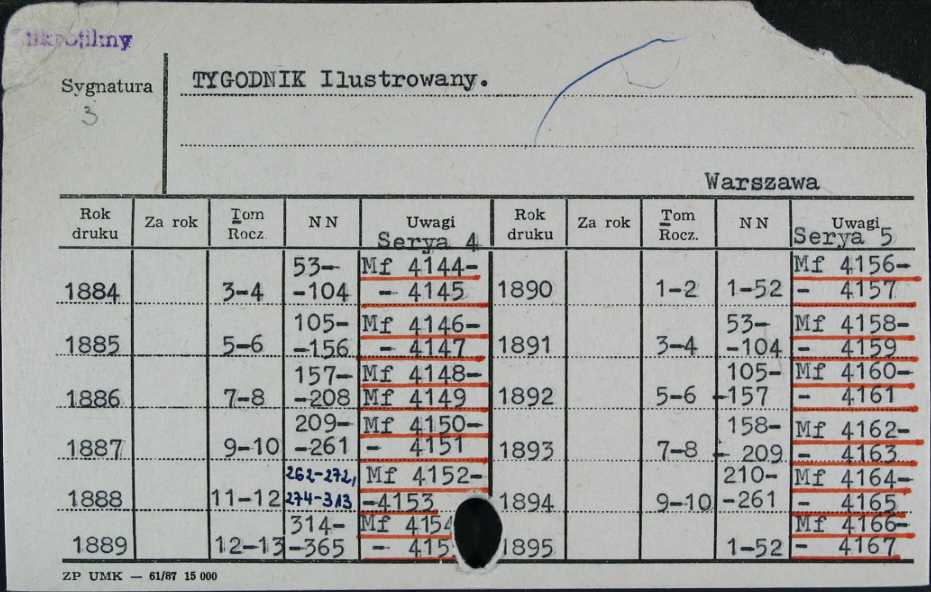 Mikrofilmy
Sygnatura
3
TYGODNIK Ilustrowany.
Warszawa
Rok druku Za rok Tom Rocz. NN Uwagi Rok druku Za rok Tom Rocz. NN Uwagi
Serya 4 Serya 5
53- Mf 4144- Mf 4156-
1884 3-4 -104 - 4145 1890 1-2 1-52 - 4157
105- Mf 4146- 53- Mf 4158-
1885 5-6 -156 - 4147 1891 3-4 -104 - 4159
157- Mf 4148- 105- Mf 4160-
1886 7-8 -208 Mf 4149 1892 5-6 -157 - 4161
209- Mf 4150- 158- Mf 4162-
1887 9-10 -261 - 4151 1893 7-8 - 209 - 4163
262-272, Mf 4152- 210- Mf 4164-
1888 11-12 274-313 -4153 1894 9-10 -261 - 4165
314- Mf 4154 Mf 4166-
1889 12-13 -365 - 415 1895 1-52 - 4167
ZP UMK — 61/87 15 000